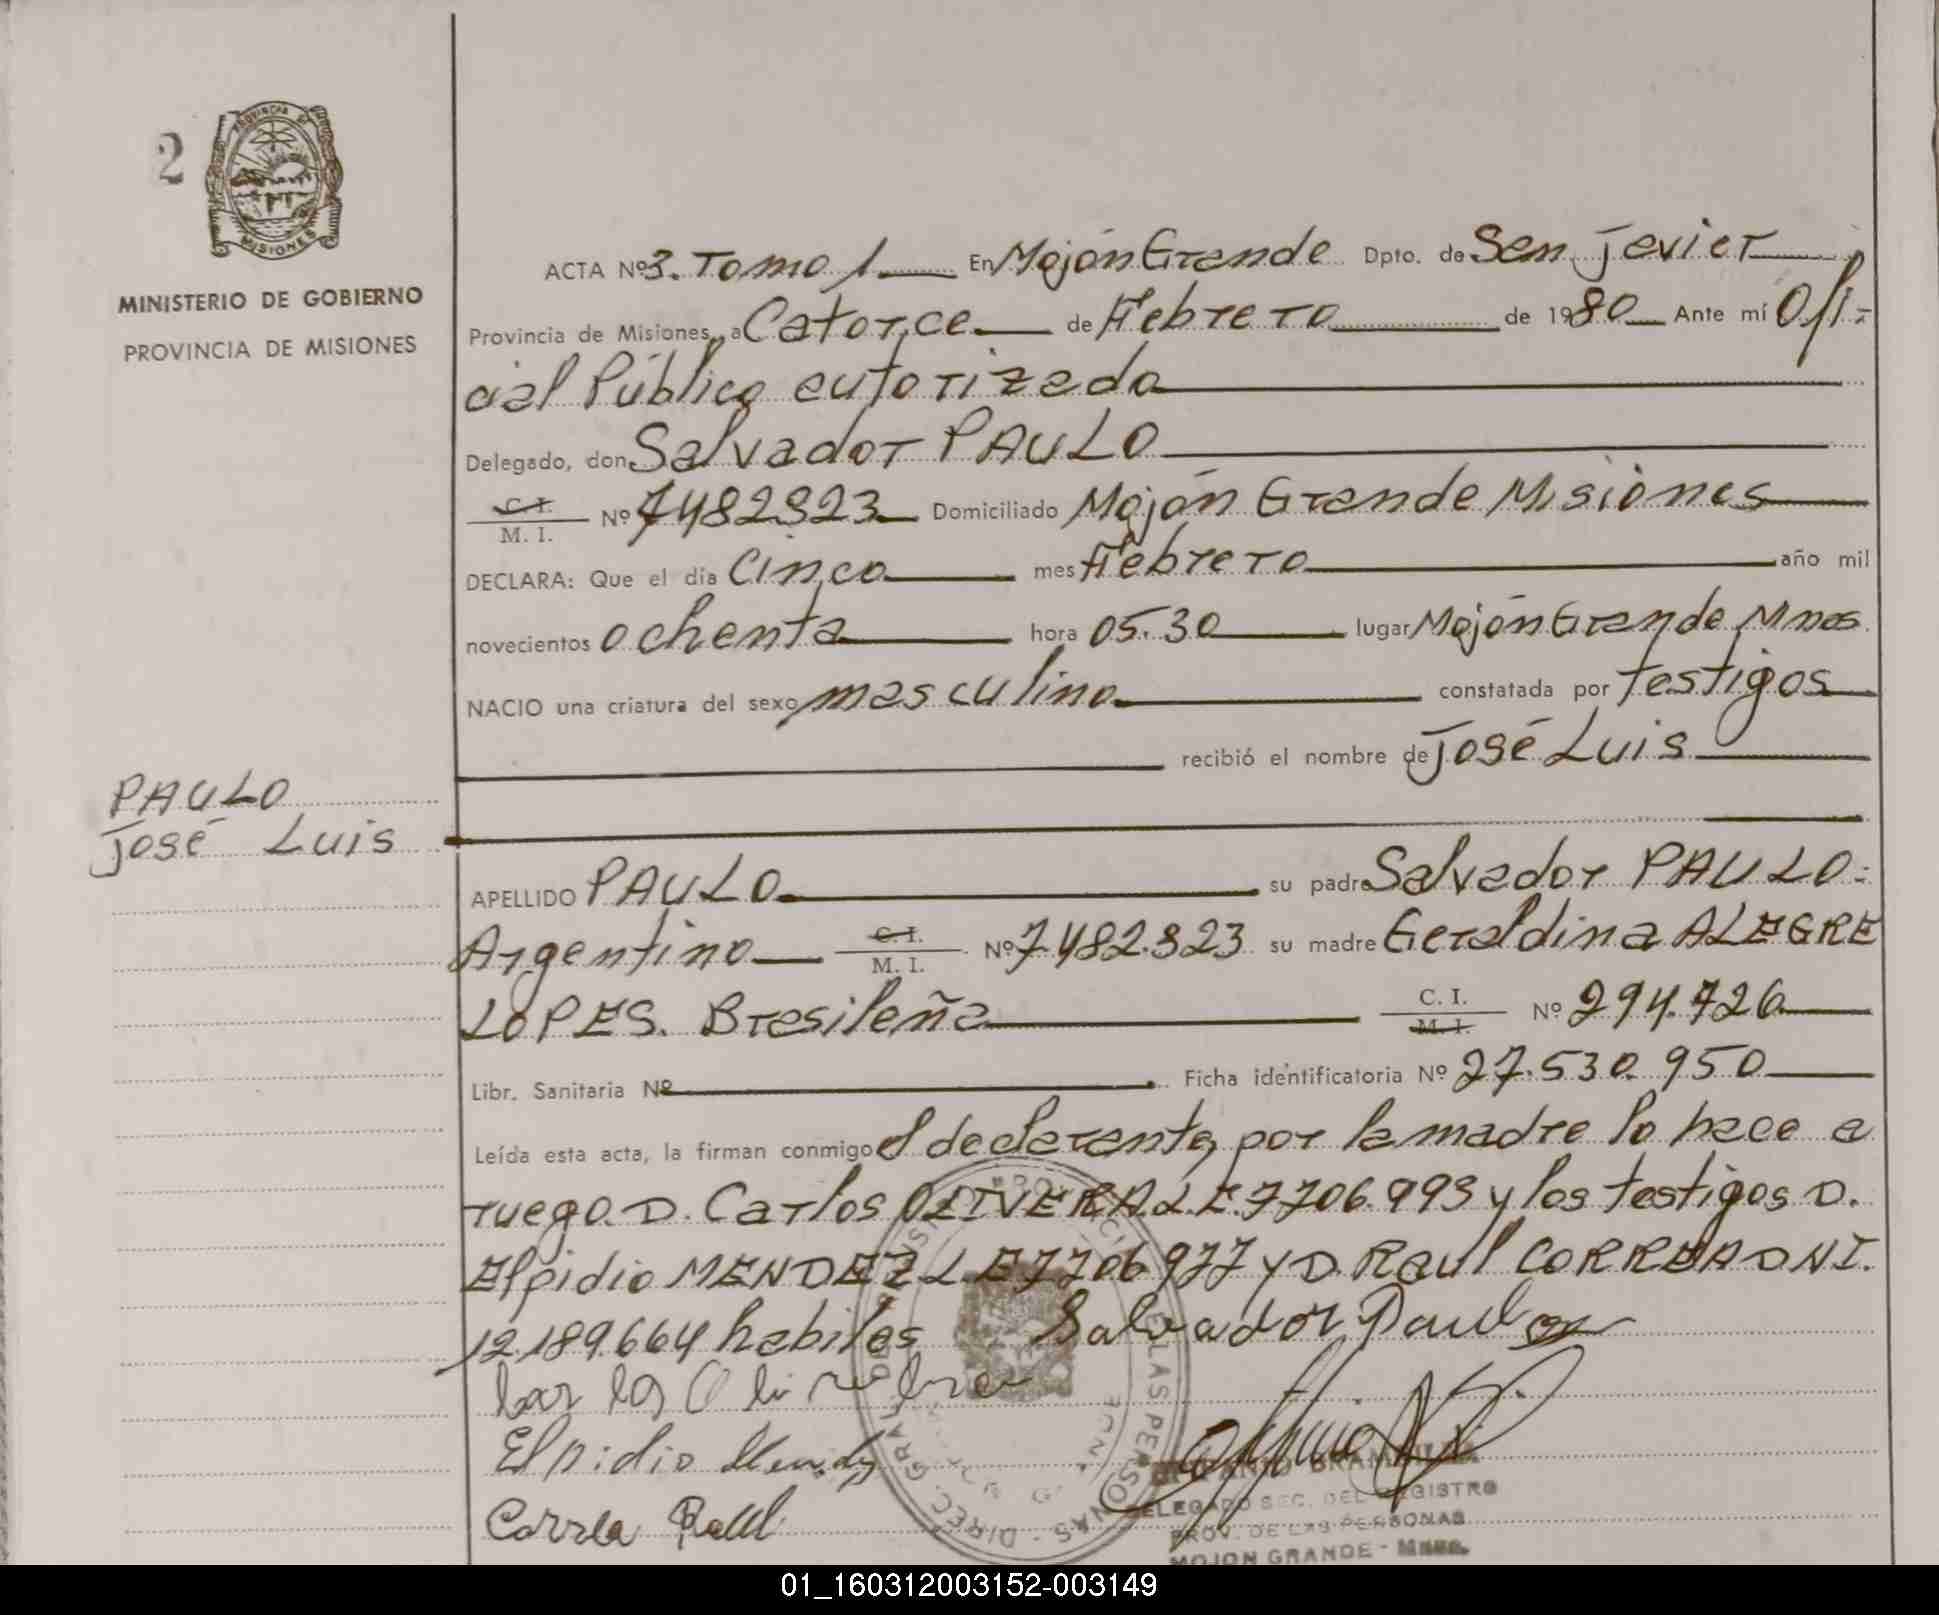 2
PROVINCIA DE
MISIONES
MINISTERIO DE GOBIERNO
PROVINCIA DE MISIONES
PAULO
José Luis
ACTA Nº 3. Tomo 1 En Mojón Grande Dpto. de San Javier
Provincia de Misiones, a Catorce de Febrero de 1980 Ante mí Ofi-
cial Público autorizado
Delegado, don Salvador PAULO
C. I.
M. I. Nº 7482323 Domiciliado Mojón Grande Misiones
DECLARA: Que el día Cinco mes Febrero año mil
novecientos ochenta hora 05.30 lugar Mojón Grande Mnes
NACIO una criatura del sexo masculino constatada por testigos
recibió el nombre de José Luis
APELLIDO PAULO su padre Salvador PAULO-
Argentino C. I. M. I. Nº 7.482.323 su madre Geraldina ALEGRE
LOPES. Brasileña C. I. M. I. Nº 294.726
Libr. Sanitaria Nº Ficha identificatoria Nº 27.530.950
Leída esta acta, la firman conmigo el declarante, por la madre lo hace a
ruego D. Carlos OLIVERA L.E. 7706.993 y los testigos D.
Elpidio MENDEZ L.E 7706977 y D. Raul CORREA DNI.
12.189.664 habiles Salvador Paulo
Carlos Olivera
Elpidio Mendez
Correa Raul
DELEGADO SEC. DEL REGISTRO
PROV. DE LAS PERSONAS
MOJON GRANDE - Mnes.
01_160312003152-003149